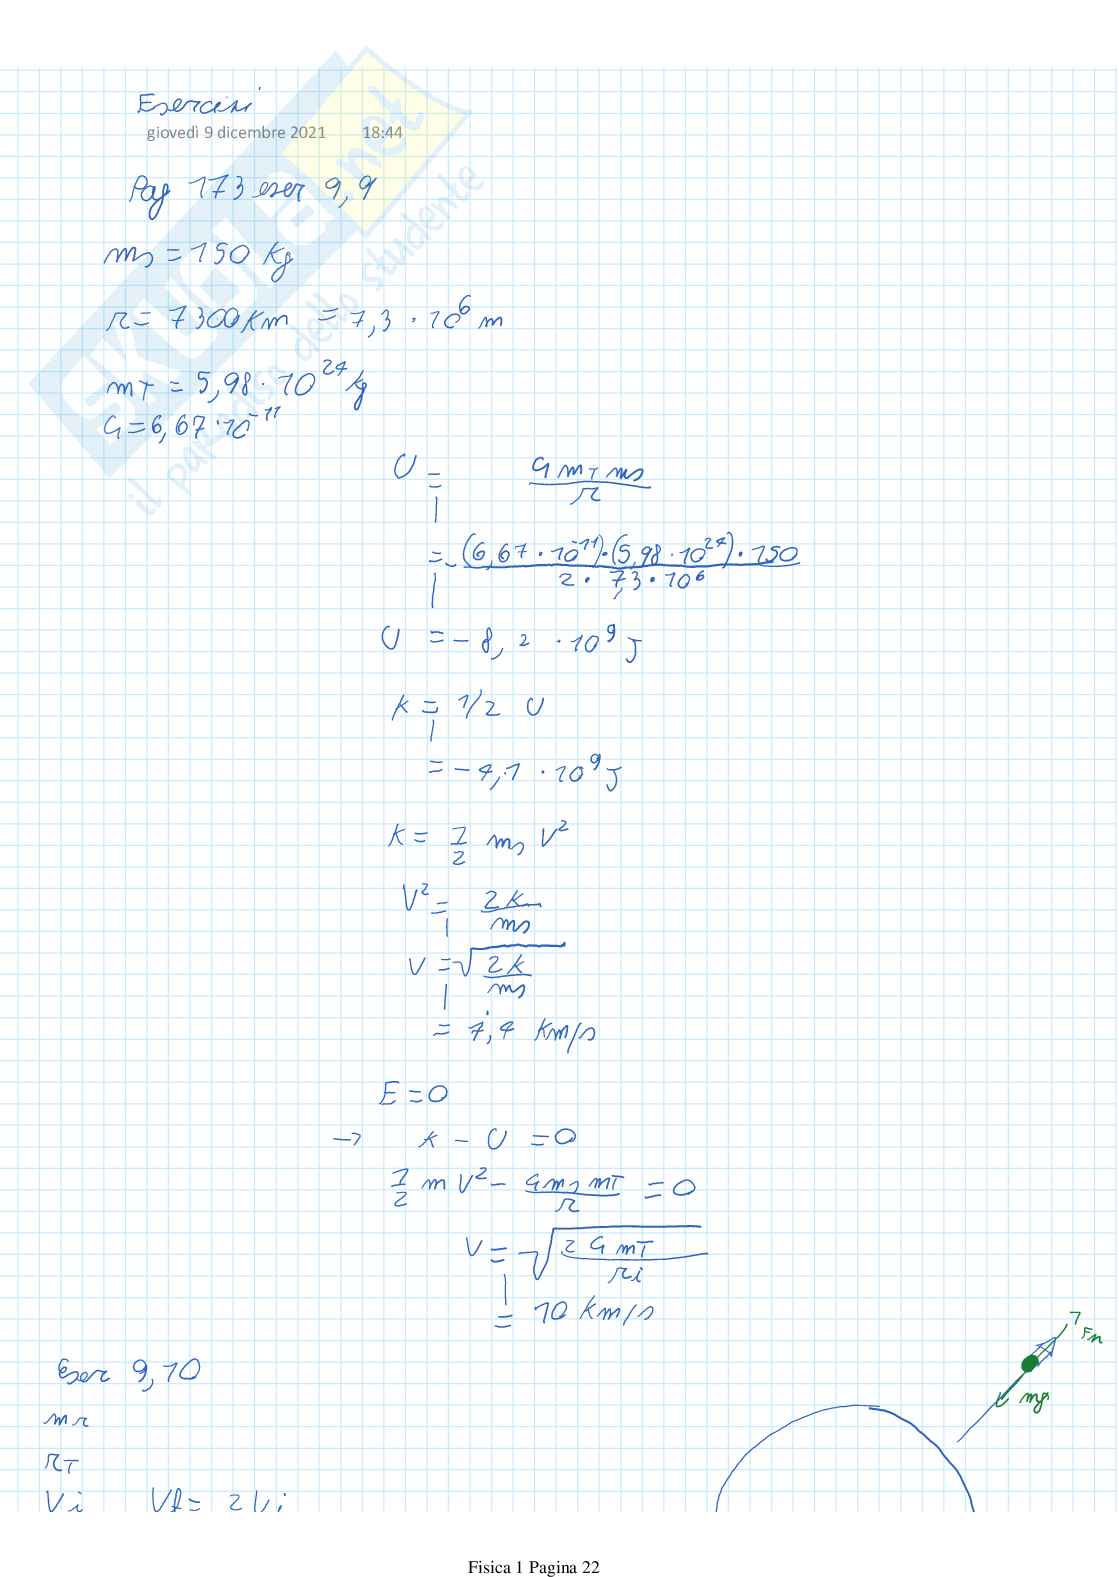 Esercizi
giovedì 9 dicembre 2021 18:44
Pag 173 eser 9,9
ms = 150 kg
r = 7300 Km = 7,3 · 10^6 m
mT = 5,98 · 10^24 kg
G = 6,67 · 10^-11
U = G mT ms / r
= - (6,67 · 10^-11) · (5,98 · 10^24) · 150 / 2 · 7,3 · 10^6
U = - 8,2 · 10^9 J
K = 1/2 U
= - 4,1 · 10^9 J
K = 1/2 ms V^2
V^2 = 2K / ms
V = √(2K / ms)
= 7,4 Km/s
E = 0
→ K - U = 0
1/2 m V^2 - G ms mT / r = 0
V = √(2 G mT / ri)
= 10 Km/s
Fn
mg
Eser 9,10
mr
rT
Vi Vf = 2Vi
Fisica 1 Pagina 22
SKUOLA.net
il paradiso dello studente